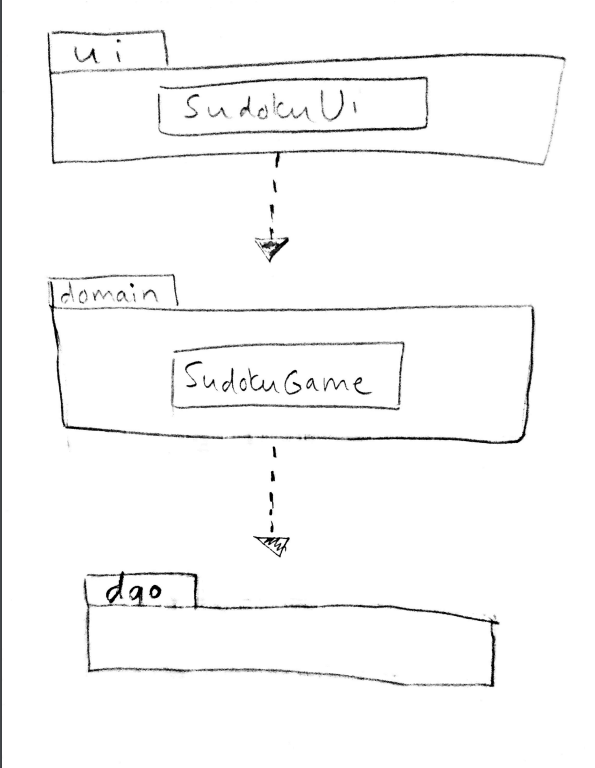 ui
SudokuUi
domain
SudokuGame
dao